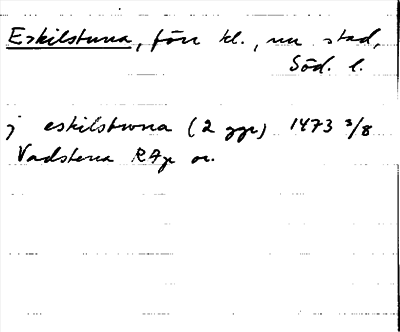 Eskilstuna, förr kl., nu stad,
Söd. l.
j eskilstwna (2 ggr) 1473 3/8
Vadstena RAp or.